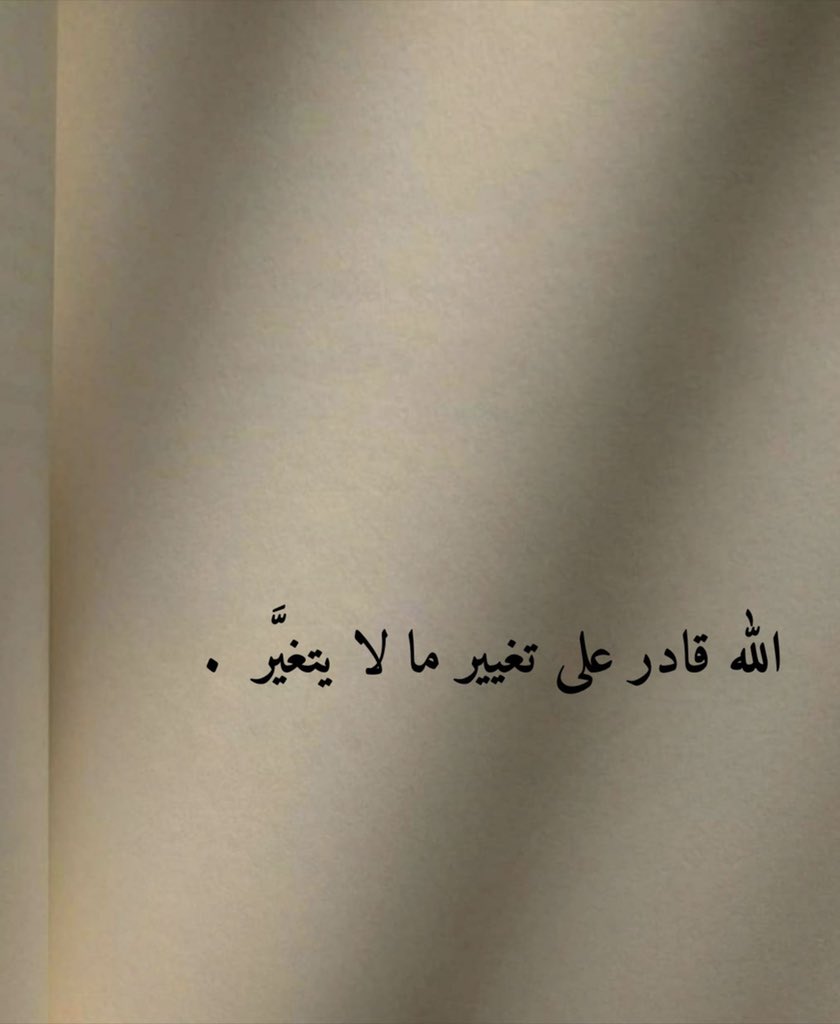 الله قادر على تغيير ما لا يتغيَّر .